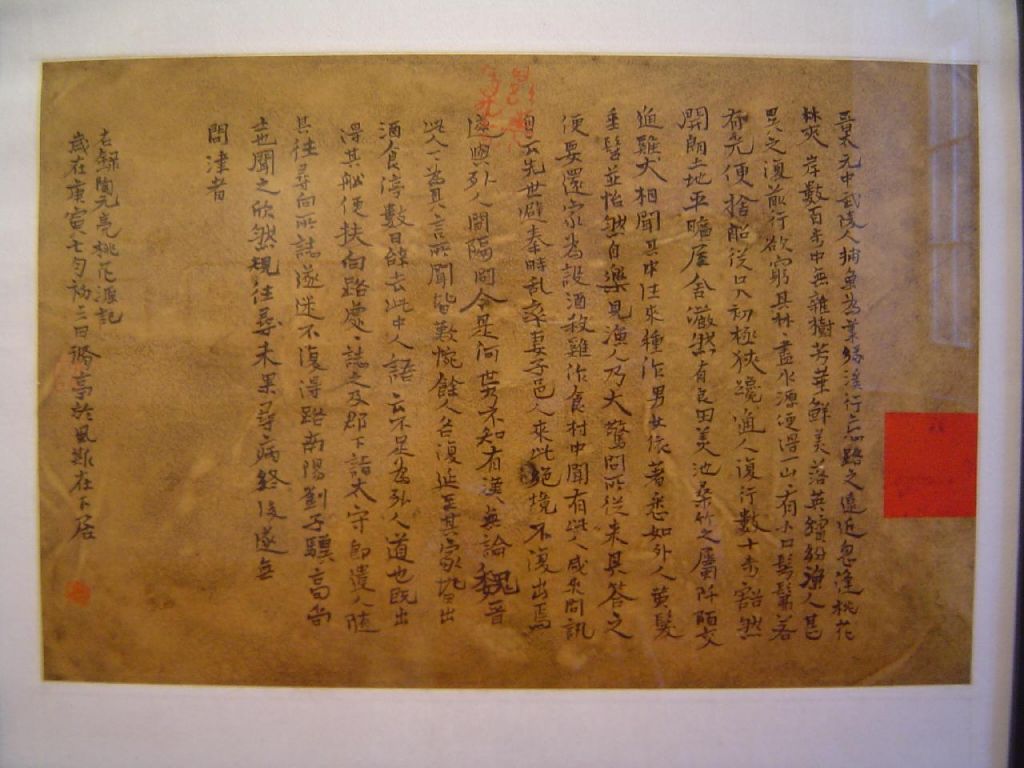 晉太元中武陵人捕魚為業緣溪行忘路之遠近忽逢桃花
林夾岸數百步中無雜樹芳華鮮美落英繽紛漁人甚
異之復前行欲窮其林林盡水源便得一山山有小口髣髴若
有光便捨船從口入初極狹纔通人復行數十步豁然
開朗土地平曠屋舍儼然有良田美池桑竹之屬阡陌交
通雞犬相聞其中往來種作男女衣著悉如外人黃髮
垂髫並怡然自樂見漁人乃大驚問所從來具答之
便要還家為設酒殺雞作食村中聞有此人咸來問訊
自云先世避秦時亂率妻子邑人來此絕境不復出焉
遂與外人間隔問今是何世乃不知有漢無論魏晉
此人一一為具言所聞皆歎惋餘人各復延至其家皆出
酒食停數日辭去此中人語云不足為外人道也既出
得其船便扶向路處處誌之及郡下詣太守即遣人隨
其往尋向所誌遂迷不復得路南陽劉子驥高尚
士也聞之欣然規往尋未果尋病終後遂無
問津者
右錄陶元亮桃花源記
歲在庚寅七月初二日 於風斯在下居